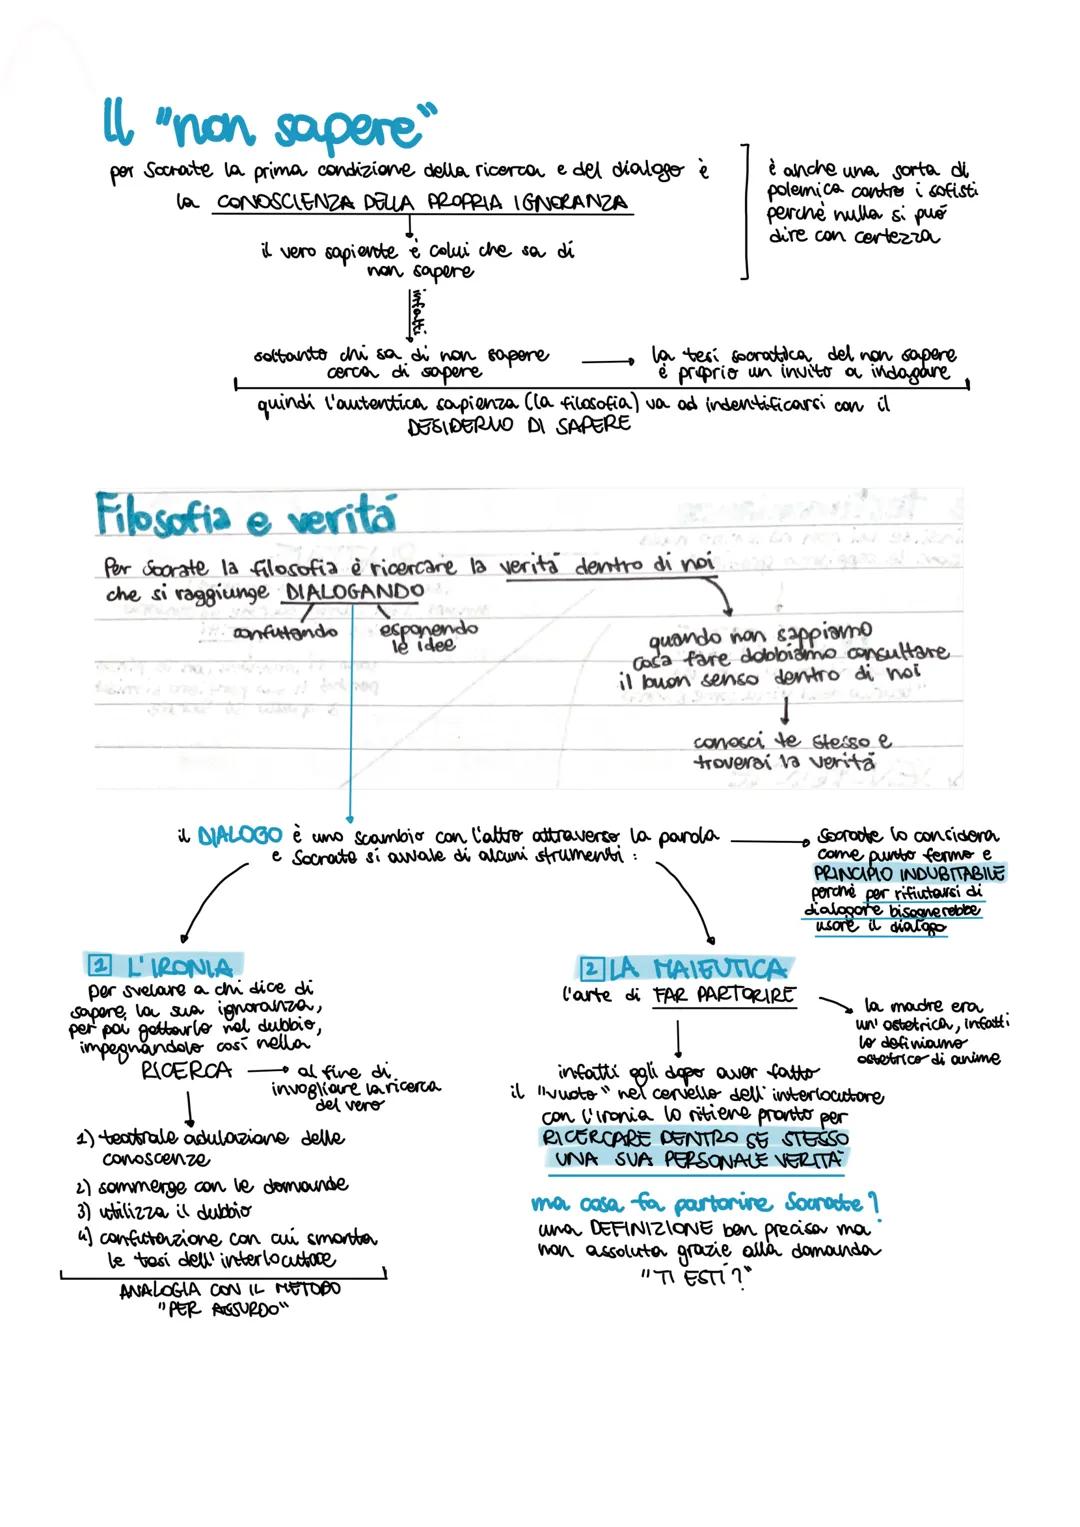 Il "non sapere"
per Socrate la prima condizione della ricerca e del dialogo è
la CONOSCIENZA DELLA PROPRIA IGNORANZA
è anche una sorta di
polemica contro i sofisti
perché nulla si può
dire con certezza
il vero sapiente è colui che sa di
non sapere
infatti
soltanto chi sa di non sapere
cerca di sapere
la tesi socratica del non sapere
è proprio un invito a indagare
quindi l'autentica sapienza (la filosofia) va ad indentificarsi con il
DESIDERIO DI SAPERE
Filosofia e verità
Per Socrate la filosofia è ricercare la verità dentro di noi
che si raggiunge DIALOGANDO
confutando
esponendo
le idee
quando non sappiamo
cosa fare dobbiamo consultare
il buon senso dentro di noi
conosci te stesso e
troverai la verità
il DIALOGO è uno scambio con l'altro attraverso la parola
e Socrate si avvale di alcuni strumenti:
Socrate lo considera
come punto fermo e
PRINCIPIO INDUBITABILE
perché per rifiutarsi di
dialogare bisognerebbe
usare il dialogo
1 L'IRONIA
per svelare a chi dice di
sapere, la sua ignoranza,
per poi gettarlo nel dubbio,
impegnandolo così nella
RICERCA
al fine di
invogliare la ricerca
del vero
1) teatrale adulazione delle
conoscenze
2) sommerge con le domande
3) utilizza il dubbio
4) confutazione con cui smonta
le tesi dell'interlocutore
ANALOGIA CON IL METODO
"PER ASSURDO"
2 LA MAIEUTICA
l'arte di FAR PARTORIRE
la madre era
un'ostetrica, infatti
lo definiamo
ostetrico di anime
infatti egli dopo aver fatto
il "vuoto" nel cervello dell'interlocutore
con l'ironia lo ritiene pronto per
RICERCARE DENTRO SE STESSO
UNA SUA PERSONALE VERITÀ
ma cosa fa partorire Socrate?
una DEFINIZIONE ben precisa ma
non assoluta grazie alla domanda
"TI ESTÍ?"